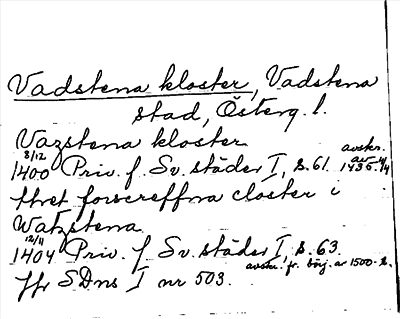 Vadstena kloster, Vadstena
stad, Österg. l.
Vazstena kloster
8/12 1400 Priv. f. Sv. städer I, s. 61. avskr. av 1435
thet forscreffna closter i
Watzstena
12/11 1404 Priv. f Sv. städer I, s. 63.
avskr. fr. börj. av 1500-t.
Jfr SDns I nr 503.